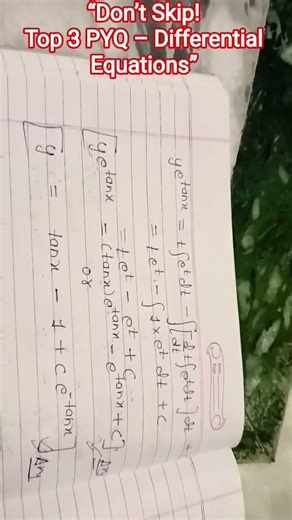 “Don’t Skip!
Top 3 PYQ – Differential
Equations”
ye^tanx = t∫e^t dt - ∫[dt/dt ∫e^t dt] dt +
= te^t - ∫1×e^t dt + c
= te^t - e^t + c
ye^tanx = (tanx)e^tanx - e^tanx + c] Ans
or
[y = tanx - 1 + c e^-tanx] Ans